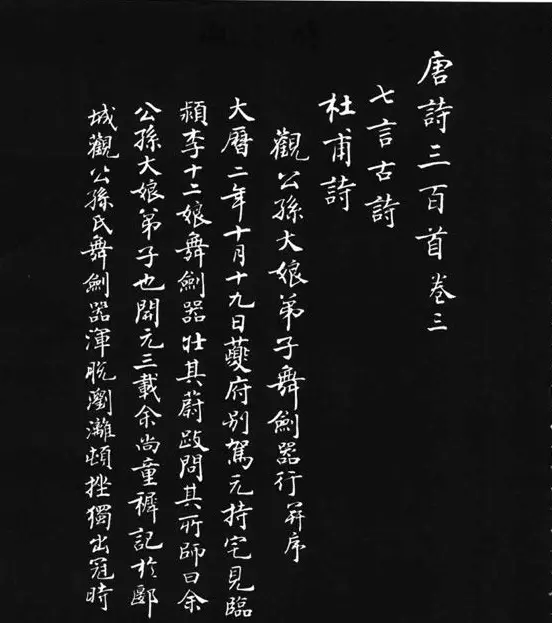 唐詩三百首 卷三
七言古詩
杜甫詩
觀公孫大娘弟子舞劍器行 并序
大曆二年十月十九日夔府別駕元持宅見臨
潁李十二娘舞劍器壯其蔚跂問其所師曰余
公孫大娘弟子也開元三載余尚童穉記於郾
城觀公孫氏舞劍器渾脫瀏灕頓挫獨出冠時